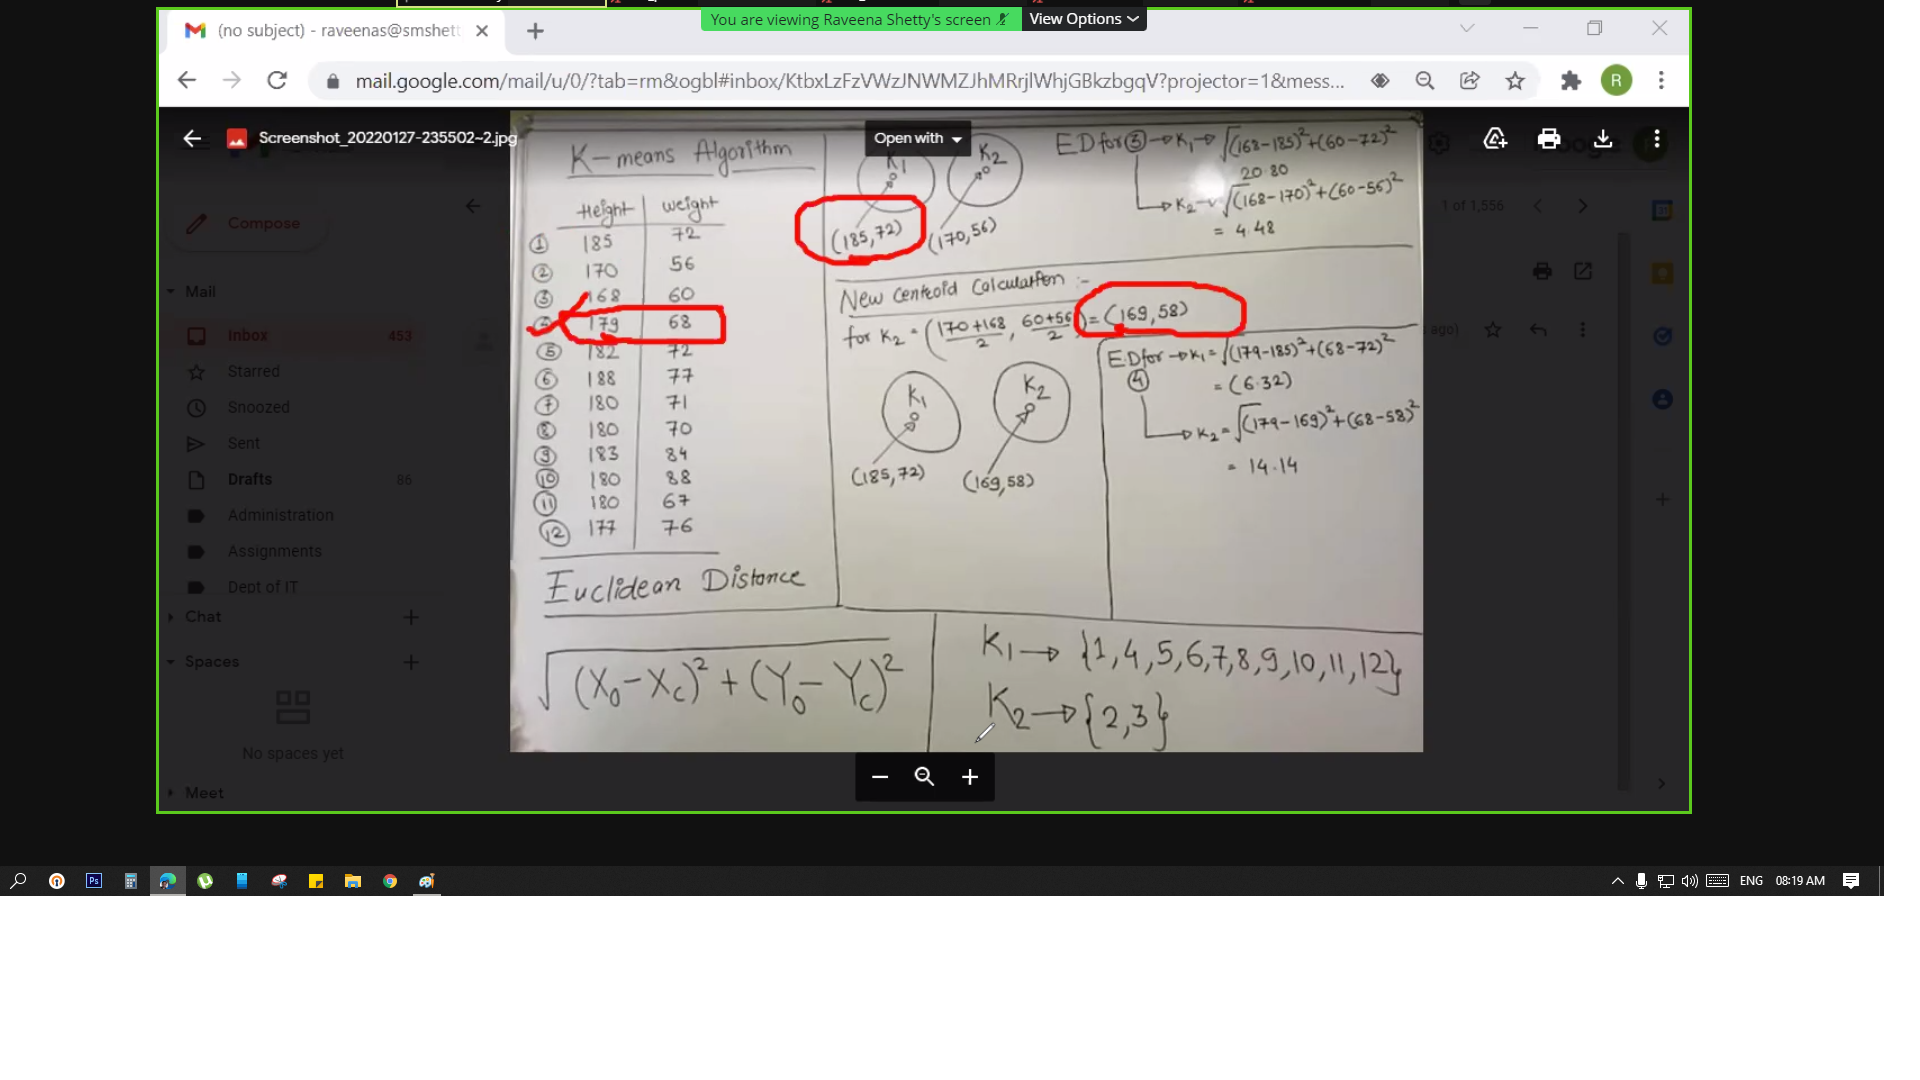 You are viewing Raveena Shetty's screen
View Options
(no subject) - raveenas@smshett
mail.google.com/mail/u/0/?tab=rm&ogbl#inbox/KtbxLzFzVWzJNWMZJhMRrjlWhjGBkzbgqV?projector=1&mess...
R
Screenshot_20220127-235502~2.jpg
Open with
Compose
1 of 1,556
Mail
Inbox 453
Starred
Snoozed
Sent
Drafts 86
Administration
Assignments
Dept of IT
Chat
Spaces
No spaces yet
Meet
ago)
K-means Algorithm
Height weight
① 185 72
② 170 56
③ 168 60
④ 179 68
⑤ 182 72
⑥ 188 77
⑦ 180 71
⑧ 180 70
⑨ 183 84
⑩ 180 88
⑪ 180 67
⑫ 177 76
Euclidean Distance
√(X₀-Xc)² + (Y₀-Yc)²
K₁ K₂
(185,72) (170,56)
ED for ③ → K₁ → √(168-185)²+(60-72)²
20.80
K₂ → √(168-170)²+(60-56)²
= 4.48
New Centroid Calculation :-
for K₂ = (170+168/2, 60+56/2) = (169,58)
K₁ K₂
(185,72) (169,58)
EDfor → K₁ = √(179-185)²+(68-72)²
④ = (6.32)
K₂ = √(179-169)²+(68-58)²
= 14.14
K₁ → {1,4,5,6,7,8,9,10,11,12}
K₂ → {2,3}
Ps
ENG 08:19 AM